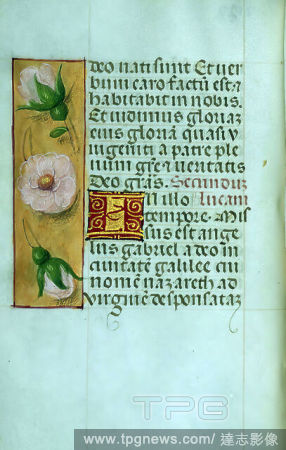 deo nati sunt Et ver
bum caro factū est ⁊
habitabit in nobis.
Et vidimus gloriaz
eius gloriā quasi v
nigeniti a patre ple
num gr̄e ⁊ veritatis
Deo grās. Secunduz
In illo lucam
tempore. Mis
sus est ange
lus gabriel a deo in
ciuitatē galilee cui
nomē nazareth ad
virginē desponsataz
TPG
www.tpgnews.com / 達志影像